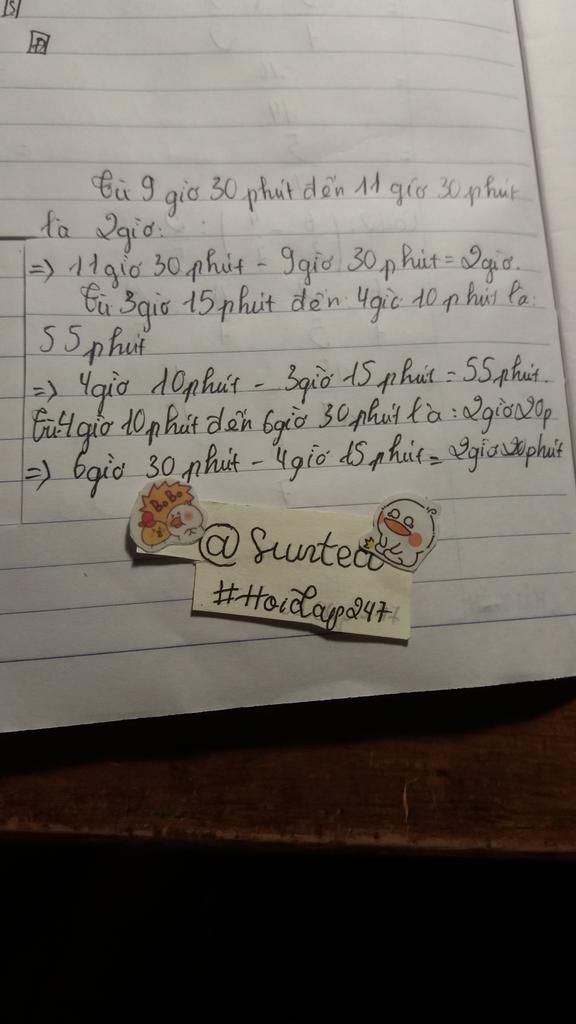 S
Đ
Từ 9 giờ 30 phút đến 11 giờ 30 phút
là 2giờ:
=> 11giờ 30 phút - 9giờ 30 phút = 2giờ.
Từ 3giờ 15 phút đến 4giờ 10 phút là:
55 phút
=> 4giờ 10phút - 3giờ 15 phút = 55 phút.
Từ 4 giờ 10 phút đến 6giờ 30 phút là: 2giờ20p
=> 6giờ 30 phút - 4giờ 15 phút = 2giờ 20phút
B.B.
@Suntea
#Hoidap247